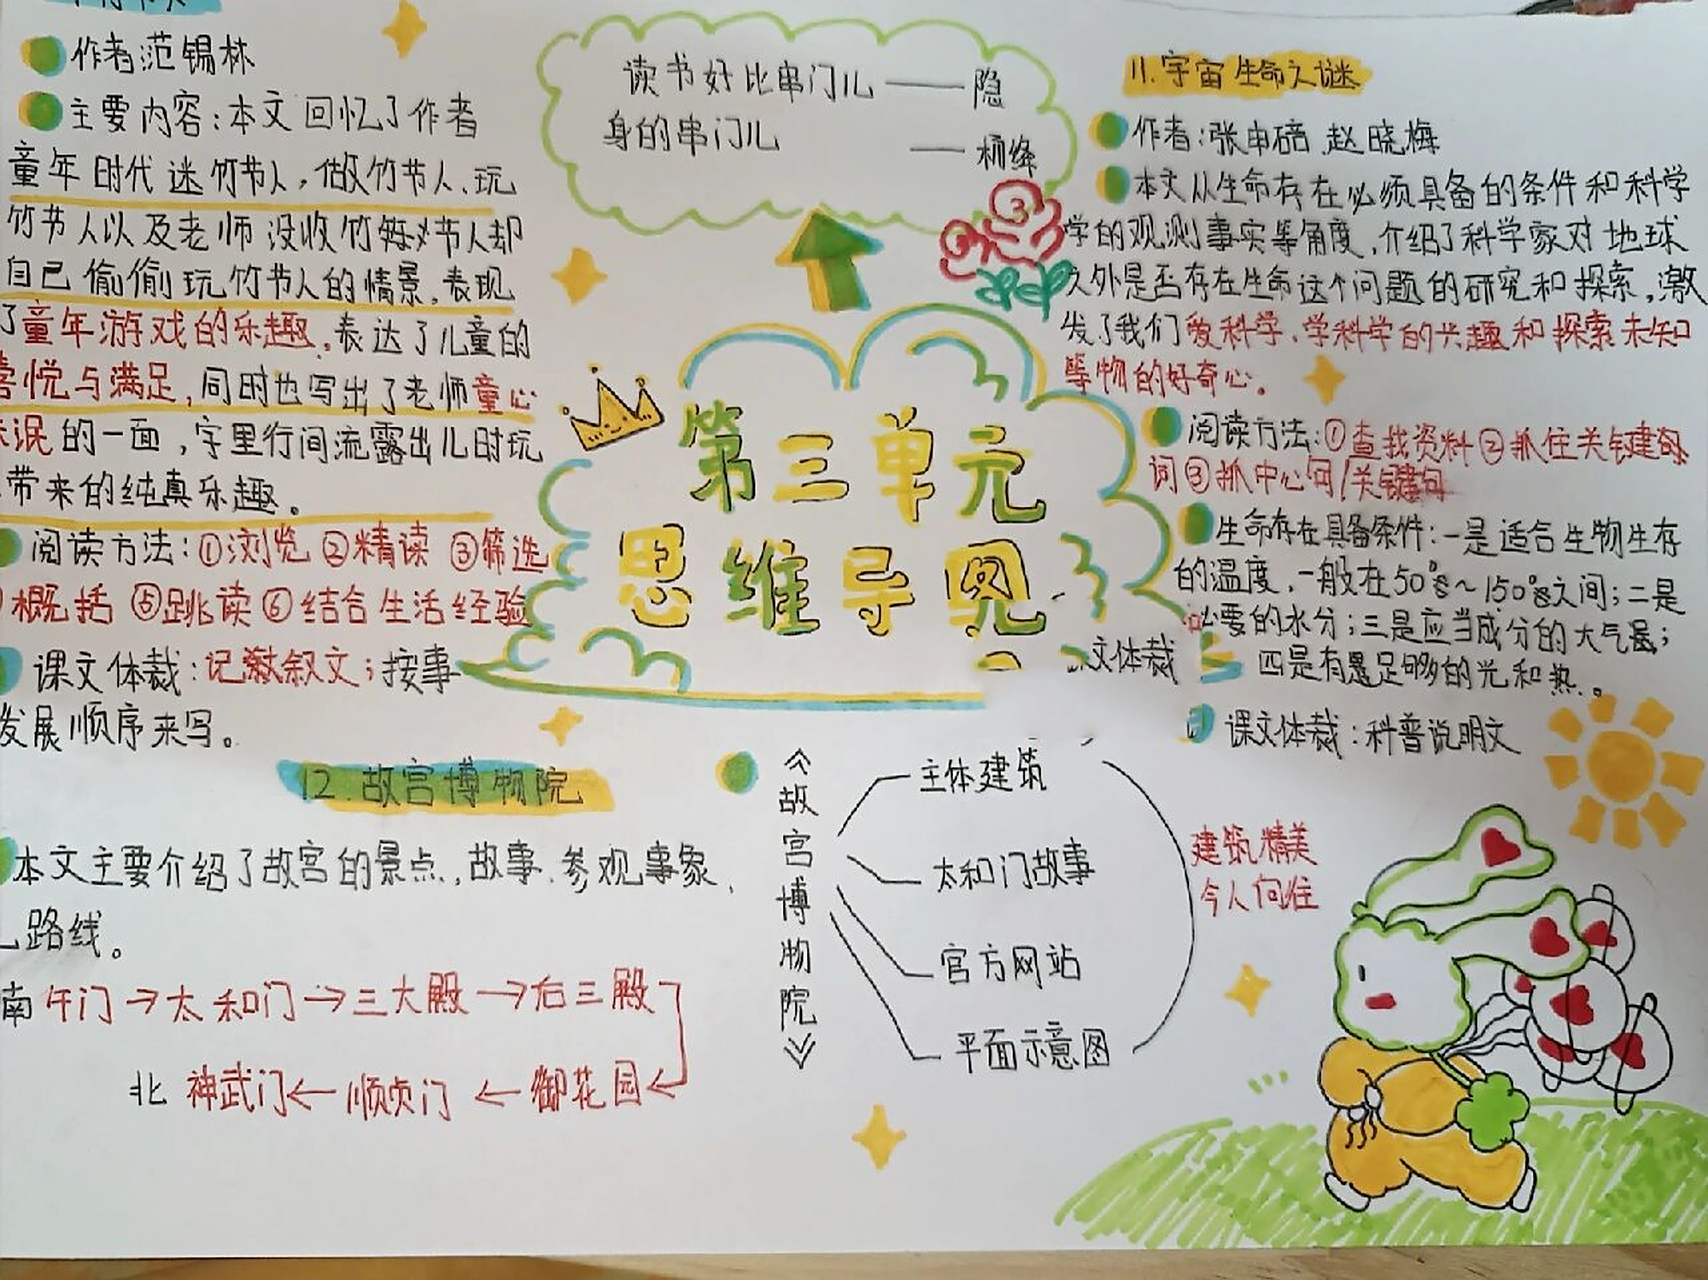 作者:范锡林
主要内容:本文回忆了作者
童年时代迷竹节人,做竹节人、玩
竹节人以及老师没收竹节人却
自己偷偷玩竹节人的情景,表现
了童年游戏的乐趣,表达了儿童的
喜悦与满足,同时也写出了老师童心
未泯的一面,字里行间流露出儿时玩
带来的纯真乐趣。
阅读方法:①浏览②精读③筛选
概括⑤跳读⑥结合生活经验
课文体裁:记叙文;按事
发展顺序来写。
读书好比串门儿——隐
身的串门儿
——杨绛
第三单元
思维导图
11.宇宙生命之谜
作者:张申碚 赵晓梅
本文从生命存在必须具备的条件和科学
学的观测事实等角度,介绍了科学家对地球
之外是否存在生命这个问题的研究和探索,激
发了我们爱科学、学科学的兴趣和探索未知
等物的好奇心。
阅读方法:①查找资料②抓住关键句
词③抓中心句/关键句
生命存在具备条件:一是适合生物生存
的温度,一般在50℃~150℃之间;二是
必要的水分;三是应当成分的大气层;
四是有足够的光和热。
文体裁
课文体裁:科普说明文
12 故宫博物院
本文主要介绍了故宫的景点,故事、参观事象、
路线。
南 午门→太和门→三大殿→后三殿
北 神武门←顺贞门←御花园
《故宫博物院》
主体建筑
太和门故事
官方网站
平面示意图
建筑精美
令人向往